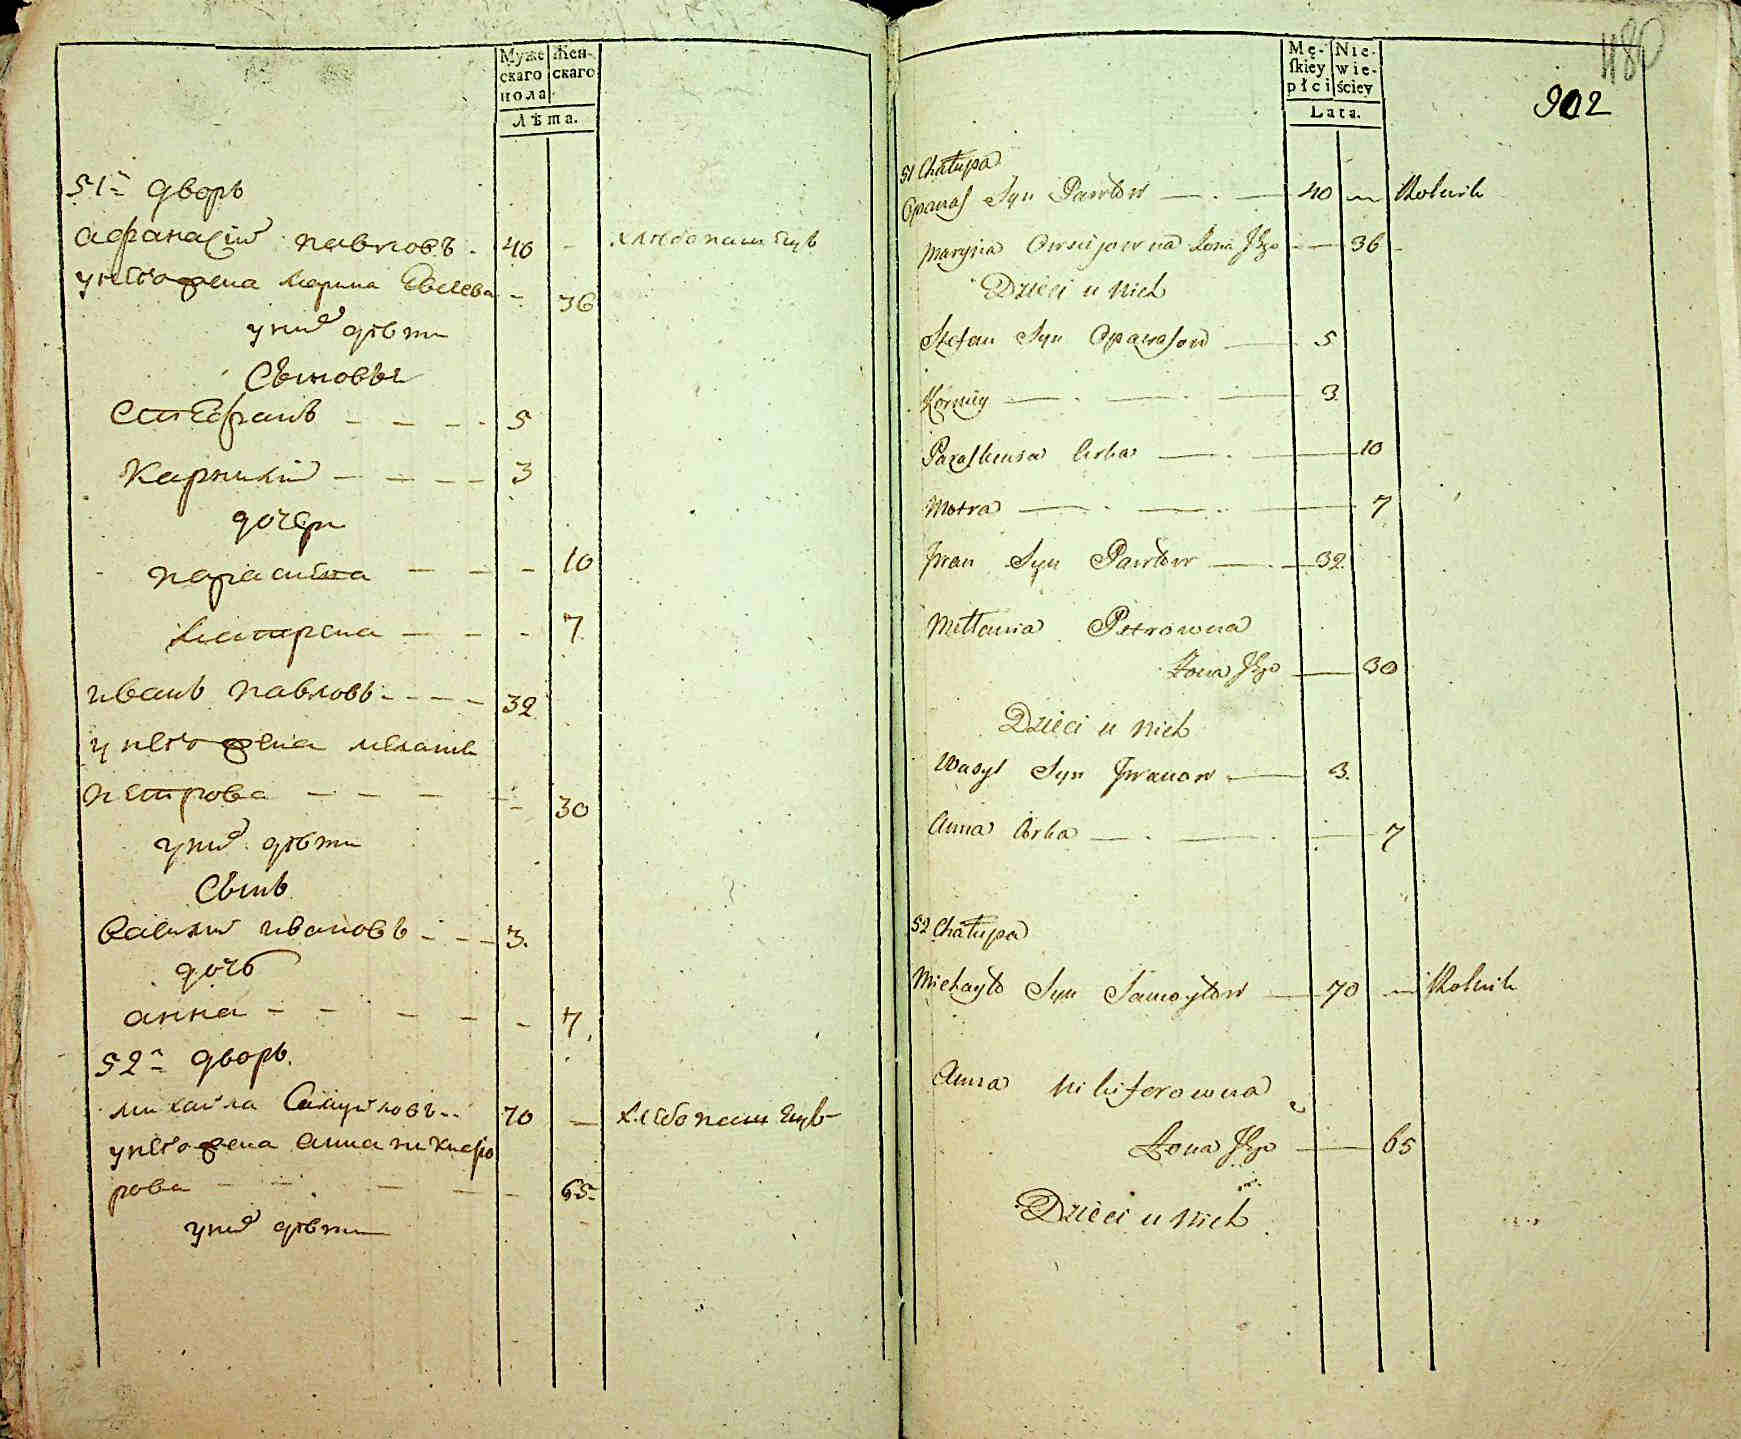 Муже
скаго
пола
Жен-
скаго
Лѣта.
51й дворъ
Афанасій павловъ 40 — хлебопашецъ
у него жена марина Евсеева — 36
у них дѣти
Сыновья
Стефанъ — — — 5
Карнилий — — — 3
дочери
параскева — — — 10
матрена — — - 7
иванъ павловъ - - - 32
у него жена меланья
петрова — — — — 30
у них дѣти
Сынъ
василий ивановъ - - - 3
дочь
анна - - - - - 7
52й дворъ
михайла Самуйловъ 70 — хлебопашецъ
у него жена анна никифо
рова — — — — — 65
у них дѣти
480
902
Mę-
ſkiey
płci
Nie-
wie-
ściey
Lata.
51 Chałupa
Opanas Syn Pawłow — . — 40 — Rolnik
Maryna żona Jego — 36 -
Dzieci u nich
Stefan Syn Opanasow — 5
Korniey — . — . — 3
Paraskewia Corka — . — 10
Motra — . — . — 7
Jwan Syn Pawłow — . — 32
Mełłania Petrowna
żona Jego — 30
Dzieci u nich
Wasyl Syn Jwanow — 3
Anna Corka — . — . — 7
52 Chałupa
Michayło Syn Samoyłow — 70 — Rolnik
Anna Nikiferowna
żona Jego — 65
Dzieci u nich